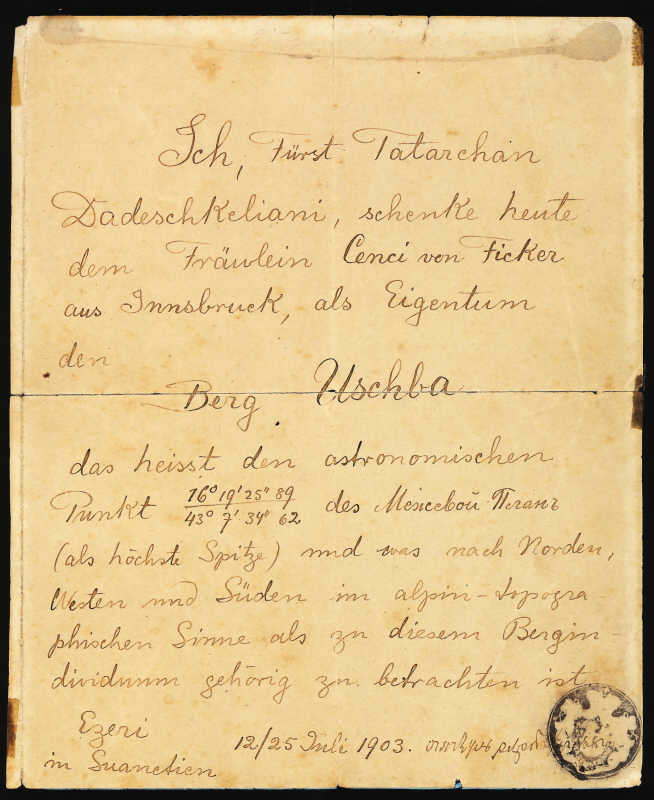 Ich, Fürst Tatarchan
Dadeschkeliani, schenke heute
dem Fräulein Cenci von Ficker
aus Innsbruck, als Eigentum
den
Berg Uschba
das heisst den astronomischen
Punkt 76° 19' 25" 89 / 43° 7' 34" 62 des Межевой Планъ
(als höchste Spitze) und was nach Norden,
Westen und Süden im alpin-topogra-
phischen Sinne als zu diesem Bergin-
dividuum gehörig zu betrachten ist
Ezeri
in Suanetien
12/25 Juli 1903.